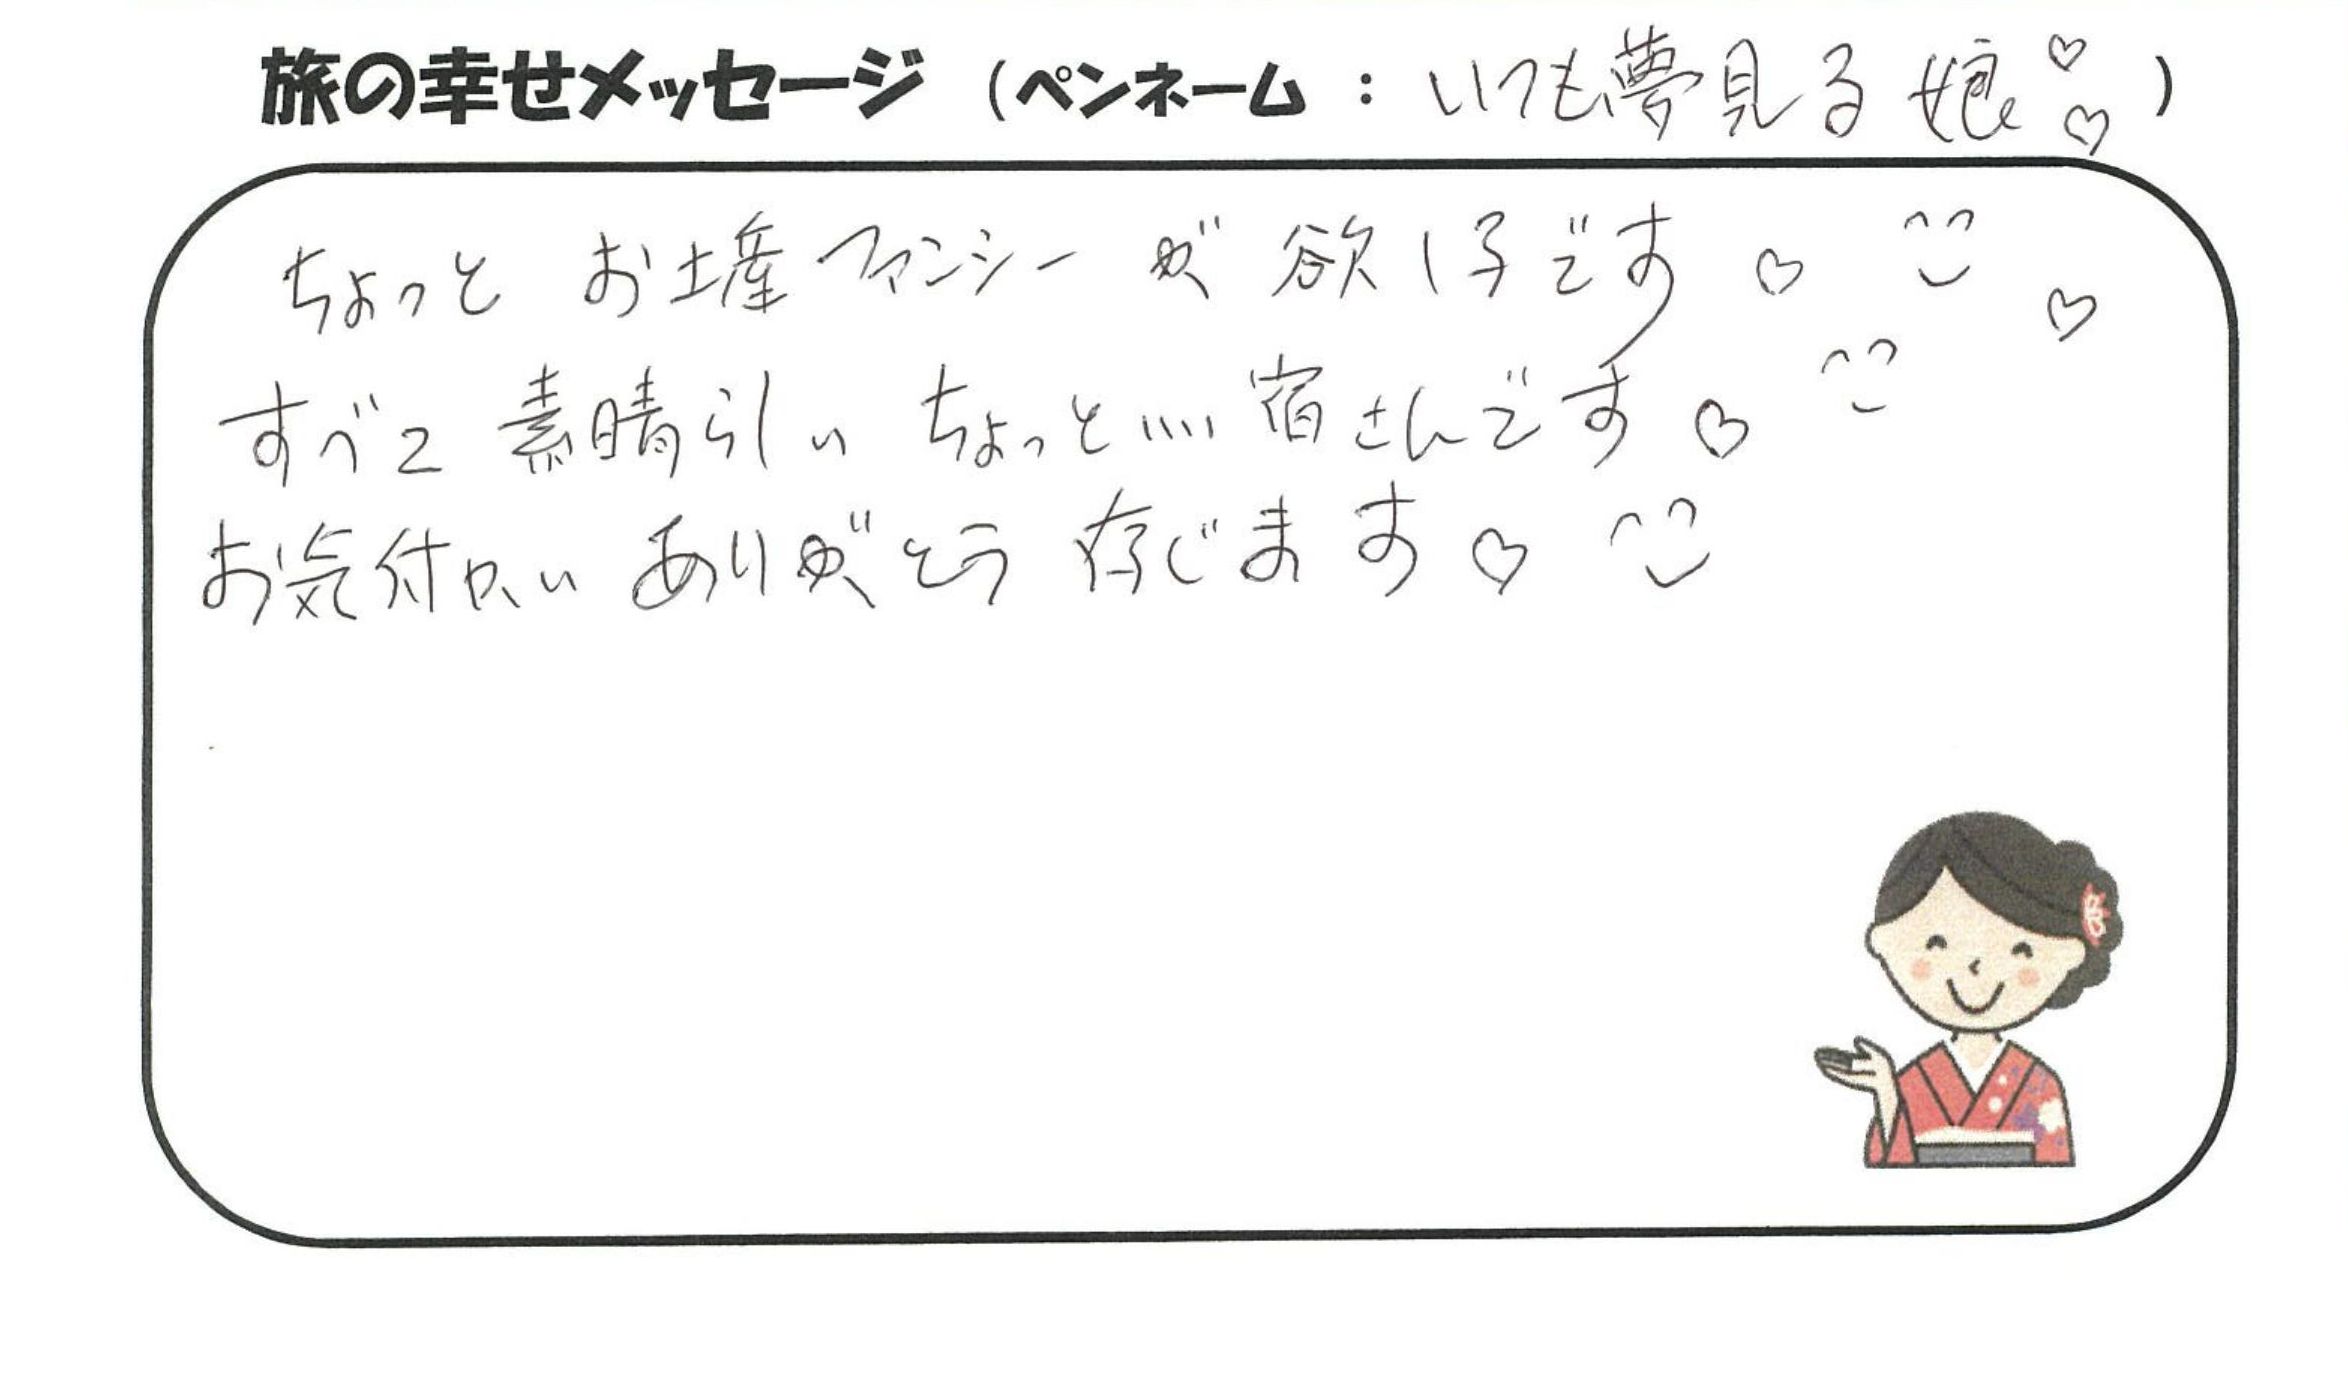 旅の幸せメッセージ (ペンネーム : いつも夢見る娘♡♡)
ちょっと お土産ファンシーが 欲し子です♡ ♡
すべて 素晴らしい ちょっといい宿さんです♡
お気付かい ありがとう 存じます♡